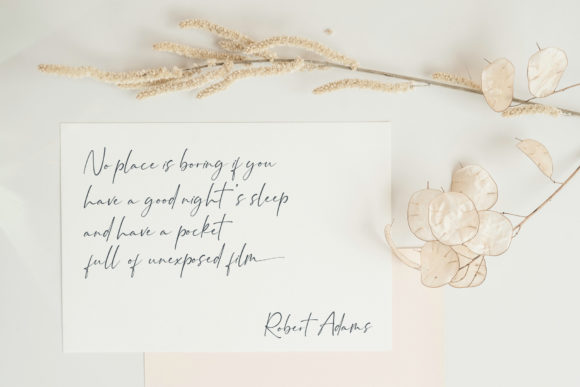 No place is boring if you
have a good night's sleep
and have a pocket
full of unexposed film
Robert Adams